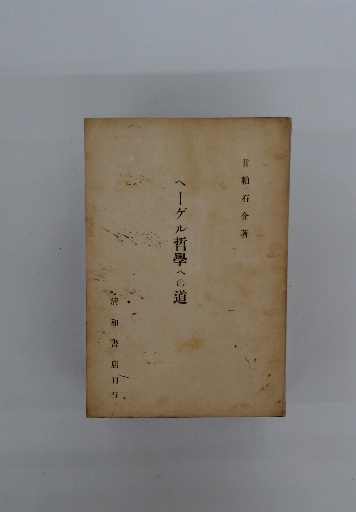 甘粕石介著
ヘーゲル哲學への道
清和書店刊行